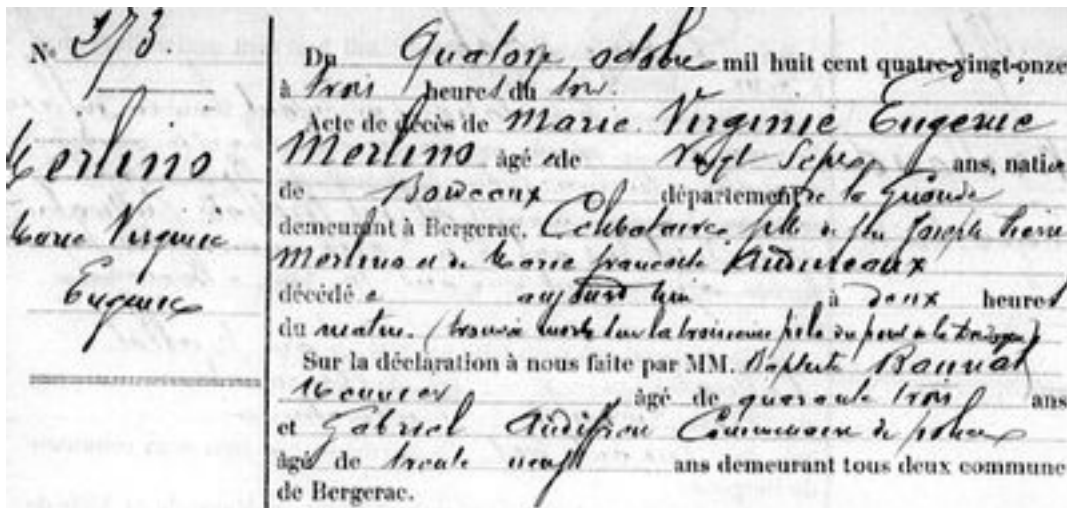 N° 273
Merlino
Marie Virginie
Eugénie
Du Quatorze octobre mil huit cent quatre-vingt-onze
à trois heures du soir.
Acte de décès de Marie Virginie Eugénie
Merlino âgée de Vingt Sept ans, native
de Bordeaux département de la Gironde
demeurant à Bergerac, Célibataire fille de feu Joseph Pierre
Merlino et de Marie françoise Audineaux
décédée aujourd'hui à deux heures
du matin. (trouvée morte sur la troisième pile du pont de la Dordogne)
Sur la déclaration à nous faite par MM. Baptiste
Menuisier, âgé de quarante trois ans
et Gabriel Commissaire de police
âgé de trente neuf ans demeurant tous deux commune
de Bergerac.